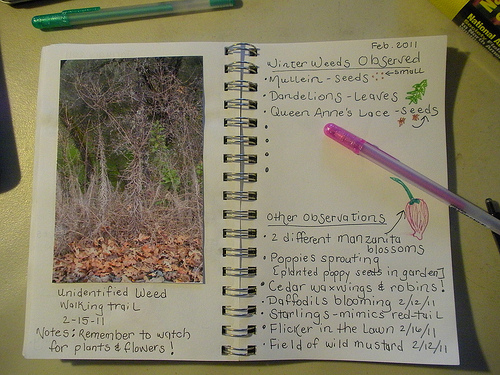 Unidentified Weed
Walking trail
2-15-11
Notes: Remember to watch
for plants & flowers!
Feb. 2011
Winter Weeds Observed
Mullein - seeds ← small
Dandelions - Leaves
Queen Anne's Lace - seeds
Other Observations
2 different manzanita
blossoms
Poppies sprouting
[planted poppy seeds in garden]
Cedar waxwings & robins!
Daffodils blooming 2/12/11
Starlings - mimics red-tail
Flicker in the Lawn 2/16/11
Field of wild mustard 2/12/11
National